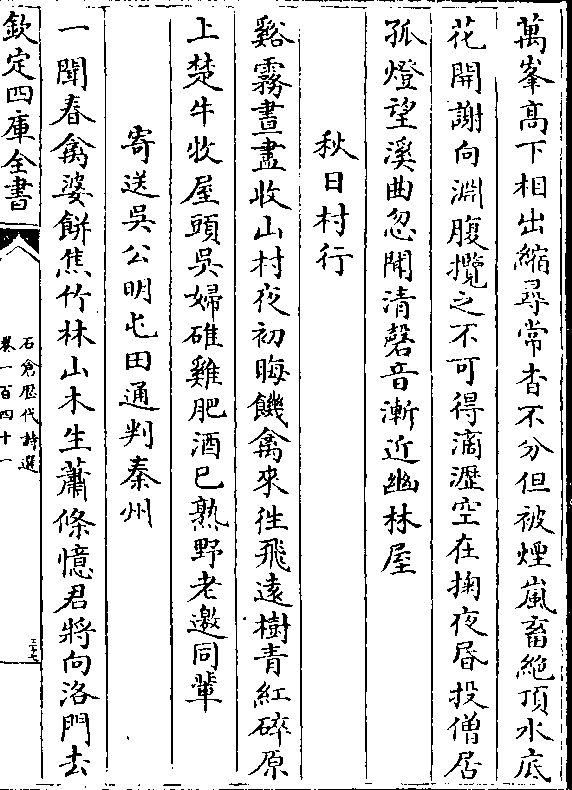 萬峯髙下相出縮尋常杳不分但被煙嵐畜絶頂水底
花開謝向淵腹攬之不可得滴瀝空在掬夜昏投僧居
孤燈望溪曲忽聞清磬音漸近幽林屋
秋日村行
谿霧晝盡收山村夜初晦饑禽來徃飛逺樹青紅碎原
上楚牛牧屋頭吳婦碓雞肥酒已熟野老邀同輩
寄送吳公明屯田通判秦州
一聞春禽婆餅焦竹林山木生蕭條憶君將向洛門去
欽定四庫全書
石倉歴代詩選
卷一百四十一
三七